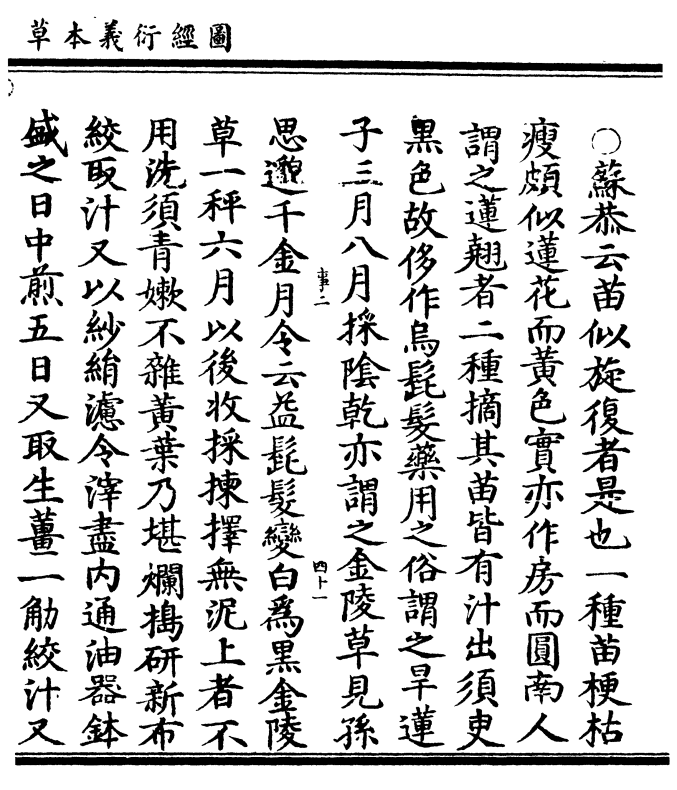 圖經衍義本草
○蘇恭云苗似旋復者是也一種苗梗枯
瘦頗似蓮花而黃色實亦作房而圓南人
謂之蓮翹者二種摘其苗皆有汁出須臾
黑色故侈作烏髭髮藥用之俗謂之旱蓮
子三月八月採陰乾亦謂之金陵草見孫
事二
四十一
思邈千金月令云益髭髮變白為黑金陵
草一秤六月以後收採揀擇無泥上者不
用洗須青嫰不雜黃葉乃堪爛搗研新布
絞取汁又以紗絹濾令滓盡內通油器鉢
盛之日中煎五日又取生薑一觔絞汁又